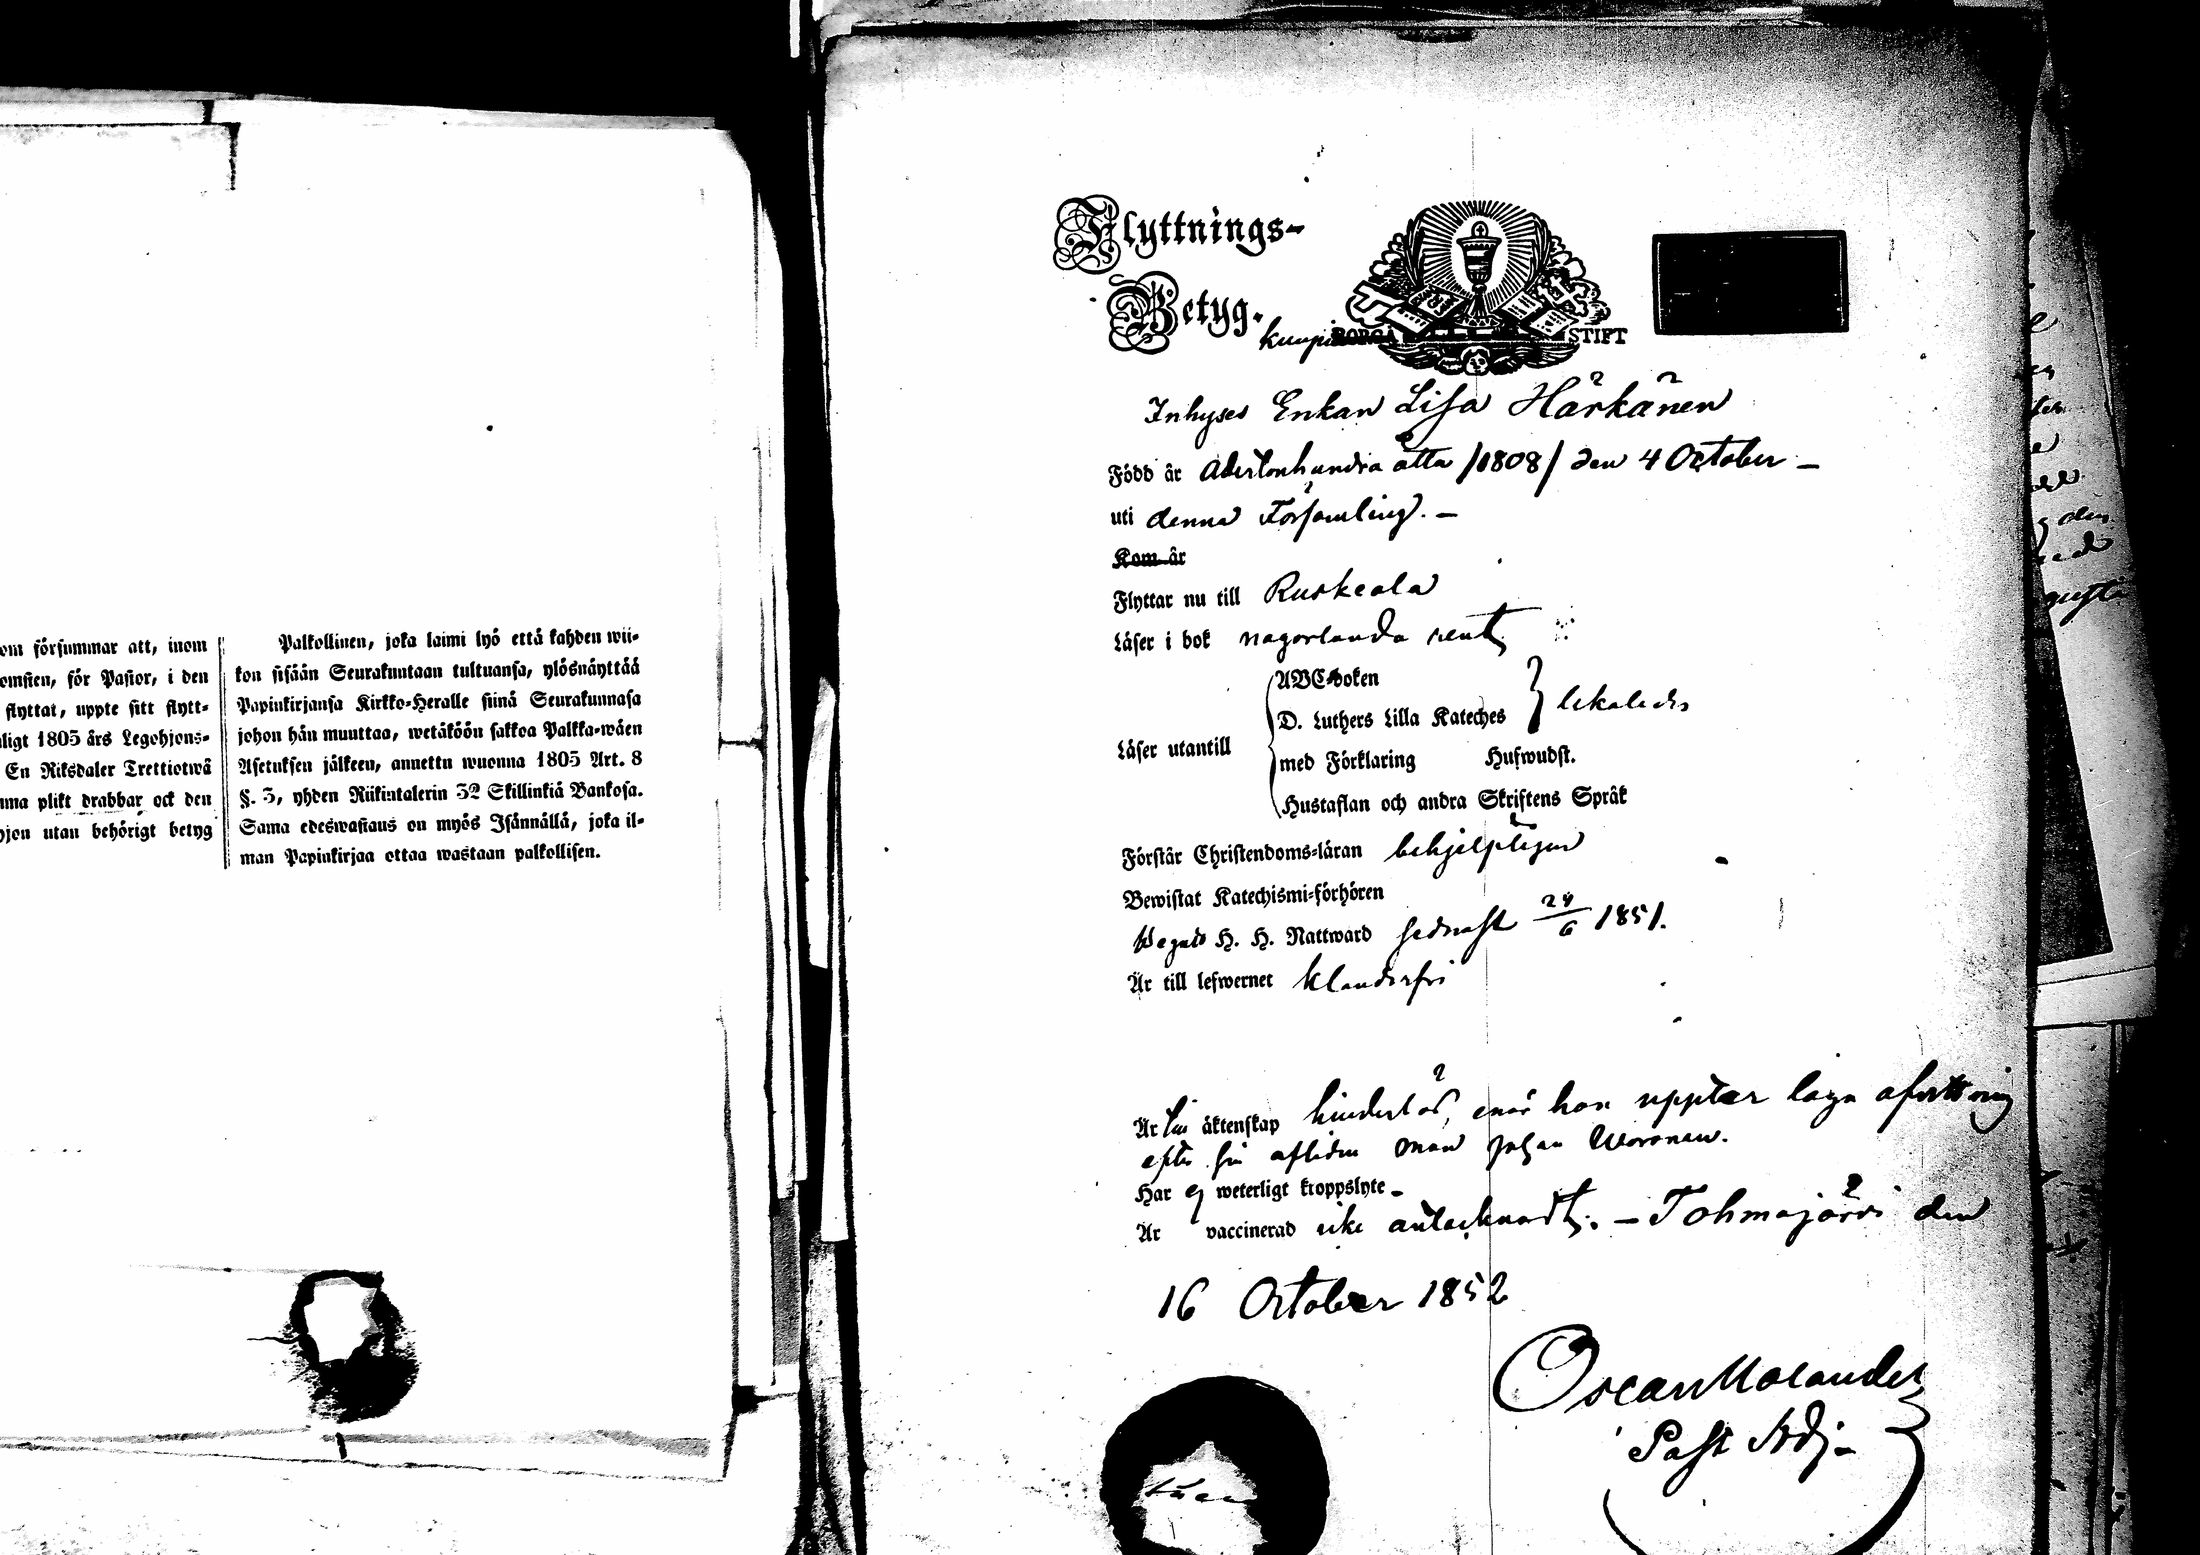 om försummar att, inom
omsten, för Pastor, i den
flyttat, uppte sitt flytt-
ligt 1805 års Legohjons-
En Riksdaler Trettiotwå
nna plikt drabbar ock den
hjon utan behörigt betyg
Palkollinen, joka laimi lyö että kahden wii-
kon sisään Seurakuntaan tultuansa, ylösnäyttää
Papinkirjansa Kirkko-Heralle siinä Seurakunnasa
johon hän muuttaa, wetäköön sakkoa Palkka-wäen
Asetuksen jälkeen, annettu wuonna 1805 Art. 8
§. 3, yhden Riikintalerin 32 Skillinkiä Bankosa.
Sama edeswastaus on myös Isännällä, joka il-
man Papinkirjaa ottaa wastaan palkollisen.
Flyttnings-
Betyg.
kuopio BORGÅ STIFT
Inhyses Enkan Lisa Härkänen
Född år Adertonhundra åtta /1808/ den 4 October –
uti denna Församling. –
Kom år
Flyttar nu till Ruskeala
Läser i bok någorlunda rent
ABC-boken
D. Luthers Lilla Kateches
Läser utantill
med Förklaring Hufwudst.
Hustaflan och andra Skriftens Språk
Förstår Christendoms-läran behjelpligen
Bewistat Katechismi-förhören
Begått H. H. Nattward sednast 24/6 1851.
Är till lefwernet klanderfri
Är till äktenskap hinderlös, enär hon uppter laga afvittring
efter sin aflidne man Johan Woronen.
Har ej weterligt kroppslyte –
Är vaccinerad icke antecknadt. – Tohmajärvi den
16 October 1852
Oscar Molander
Past Adj.